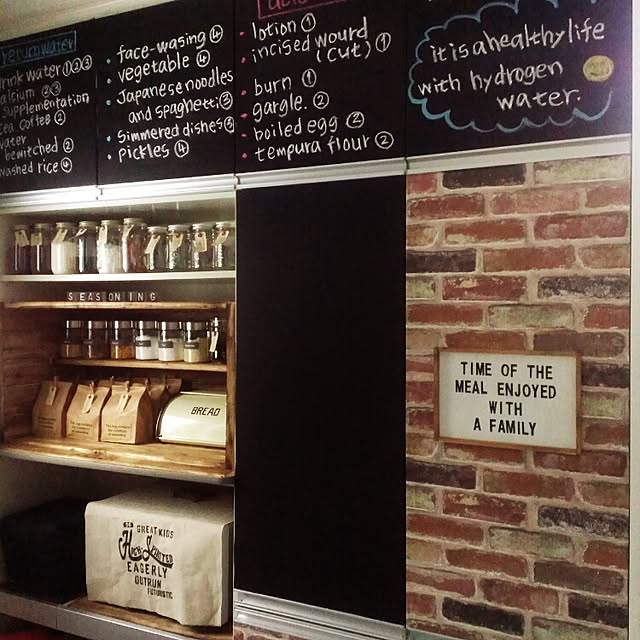 return water
drink water①②③
calcium ②③
supplementation
tea coffee②
water
bewitched ②
washed rice④
• face-wasing④
• vegetable ④
• Japanese noodles
and spaghetti③
• Simmered dishes③
• pickles ④
• lotion①
• incised wourd
(cut)①
• burn ①
• gargle. ②
• boiled egg ②
• tempura flour②
it is a healthy life
with hydrogen
water.
SEASONING
BREAD
TIME OF THE
MEAL ENJOYED
WITH
A FAMILY
GREAT KIDS
EAGERLY
OUTRUN
FUTURISTIC